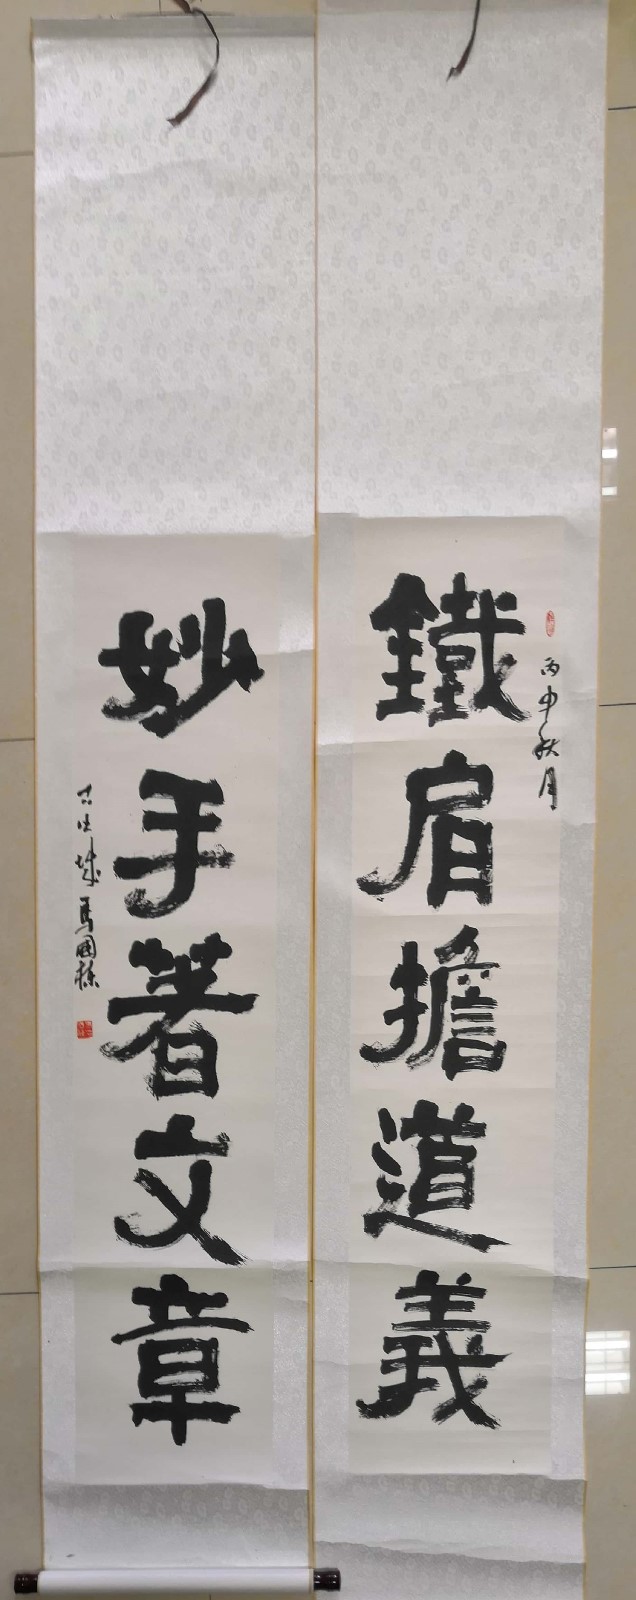 丙申秋月
鐵肩擔道義
妙手著文章
馬國棟